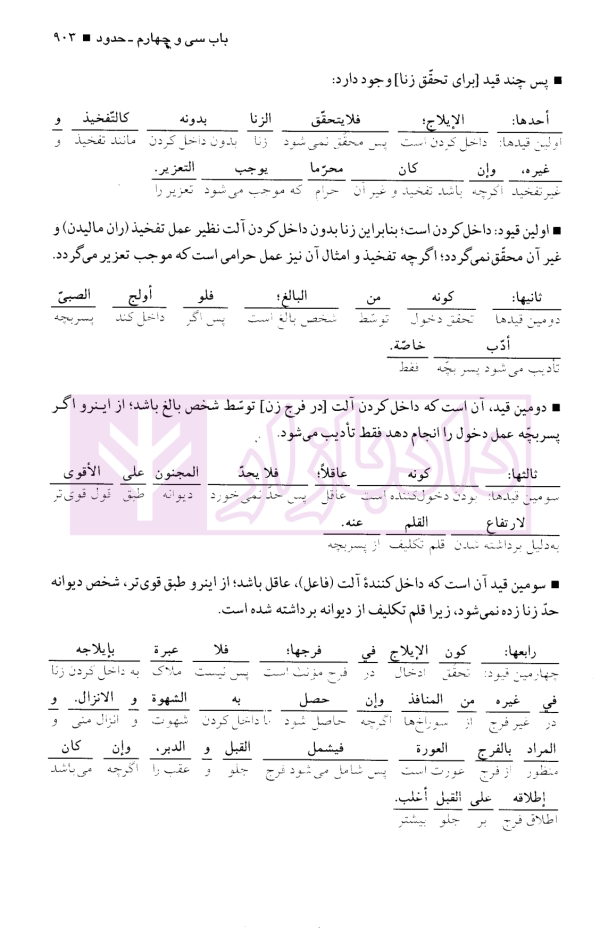 باب سی و چهارم ـ حدود ■ ۹۰۳
■ پس چند قید [برای تحقّق زنا] وجود دارد:
أحدها: الإیلاج؛ فلایتحقّق الزنا بدونه کالتّفخیذ و
اولین قیدها: داخل کردن است پس محقّق نمی‌شود زنا بدون داخل کردن مانند تفخیذ و
غیره، وإن کان محرّما یوجب التعزیر.
غیر تفخیذ اگرچه باشد تفخیذ و غیر آن حرام که موجب می‌شود تعزیر را
■ اولین قیود: داخل کردن است؛ بنابراین زنا بدون داخل کردن آلت نظیر عمل تفخیذ (ران مالیدن) و
غیر آن محقّق نمی‌گردد؛ اگرچه تفخیذ و امثال آن نیز عمل حرامی است که موجب تعزیر می‌گردد.
ثانیها: کونه من البالغ؛ فلو أولج الصبیّ
دومین قیدها تحقق دخول توسّط شخص بالغ است پس اگر داخل کند پسربچه
أدّب خاصّة.
تأدیب می‌شود پسر بچّه فقط
■ دومین قید، آن است که داخل کردن آلت [در فرج زن] توسّط شخص بالغ باشد؛ از اینرو اگر
پسربچّه عمل دخول را انجام دهد فقط تأدیب می‌شود.
ثالثها: کونه عاقلاً؛ فلا یحدّ المجنون علی الأقوی
سومین قیدها: بودن دخول‌کننده است عاقل پس حدّ نمی‌خورد دیوانه طبق قول قوی‌تر
لارتفاع القلم عنه.
به‌دلیل برداشته شدن قلم تکلیف از پسربچه
دادبازار
■ سومین قید آن است که داخل کنندۀ آلت (فاعل)، عاقل باشد؛ از اینرو طبق قوی‌تر، شخص دیوانه
حدّ زنا زده نمی‌شود، زیرا قلم تکلیف از دیوانه برداشته شده است.
رابعها: کون الإیلاج في فرجها؛ فلا عبرة بإیلاجه
چهارمین قیود: تحقق ادخال در فرج مؤنث است پس نیست ملاک به داخل کردن زنا
في غیره من المنافذ وإن حصل به الشهوة و الانزال. و
در غیر فرج از سوراخ‌ها اگرچه حاصل شود با داخل کردن شهوت و انزال منی و
المراد بالفرج العورة فیشمل القبل و الدبر، وإن کان
منظور از فرج عورت است پس شامل می‌شود فرج جلو و عقب را اگرچه می‌باشد
إطلاقه علی القبل أغلب.
اطلاق فرج بر جلو بیشتر